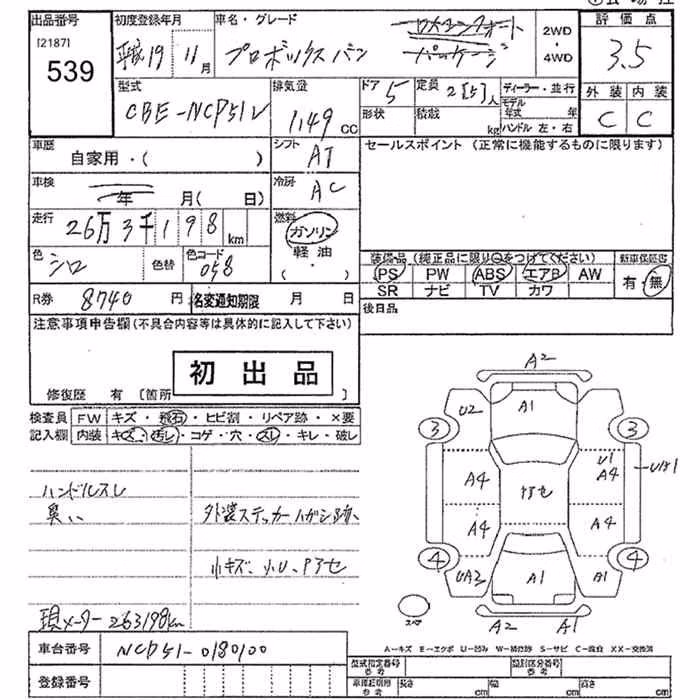 出品番号 初度登録年月 車名・グレード 評価点
[2187] 539 平成19 11月 プロボックスバン 2WD・4WD 3.5
型式 排気量 ドア 5 定員 2[5]人 ディーラー・並行 外装 内装
CBE-NCP51V 1,149cc 形状 積載 kg モデル年式 年 ハンドル 左・右 C C
車歴 自家用・( ) シフト AT セールスポイント (正常に機能するものに限ります)
車検 年 月( 日) 冷房 AC
走行 26万3千198km 燃料 ガソリン 軽油 ( ・ )
色 シロ 色替 色コード 058 装備品 (純正品に限り○をつけてください) 新車保証書
PS PW ABS エアB AW 有・無
SR ナビ TV カワ
R券 8740円 名変通知期限 月 日 後日品
注意事項申告欄(不具合内容等は具体的に記入して下さい)
初出品
修復歴 有 [箇所 ]
検査員 FW キズ・飛石・ヒビ割・リペア跡・×要
記入欄 内装 キズ・汚レ・コゲ・穴・スレ・キレ・破レ
ハンドルスレ
臭い 外装ステッカーハガシ跡
小キズ、小U、アスセ
現メーター263198km
A2
U2 A1
3 3
A4 U1 A4
アスセ
A4 A4
4 4
UA3 A1 A1
スペア A2 A1
A-キズ E-エクボ U-凹み W-補修跡 S-サビ C-腐食 XX-交換済
車台番号 NCP51-0180100 型式指定番号 類別区分番号
登録番号 長さ cm 幅 cm 高さ cm